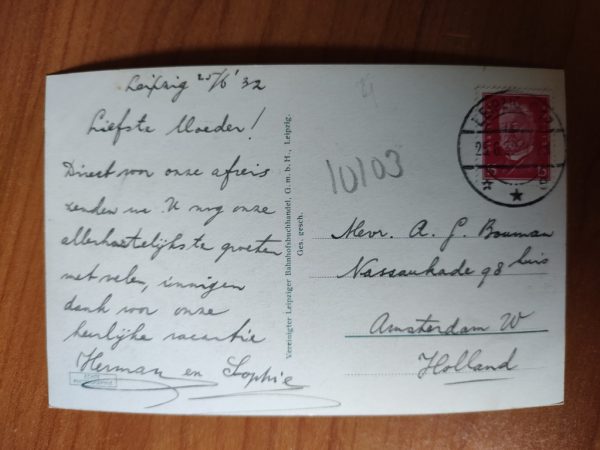 Leipzig 25/6 '32
Liefste Moeder!
Direct voor onze afreis
zenden we U nog onze
allerhartelijkste groeten
met velen, innigen
dank voor onze
heerlijke vacantie
Herman en Sophie
Vereinigter Leipziger Bahnhofsbuchhandel, G. m. b. H., Leipzig.
Ges. gesch.
10/03
LEIPZIG
25.6.32
15
Mevr. A. G. Bouman
Nassaukade 98 huis
Amsterdam W
Holland